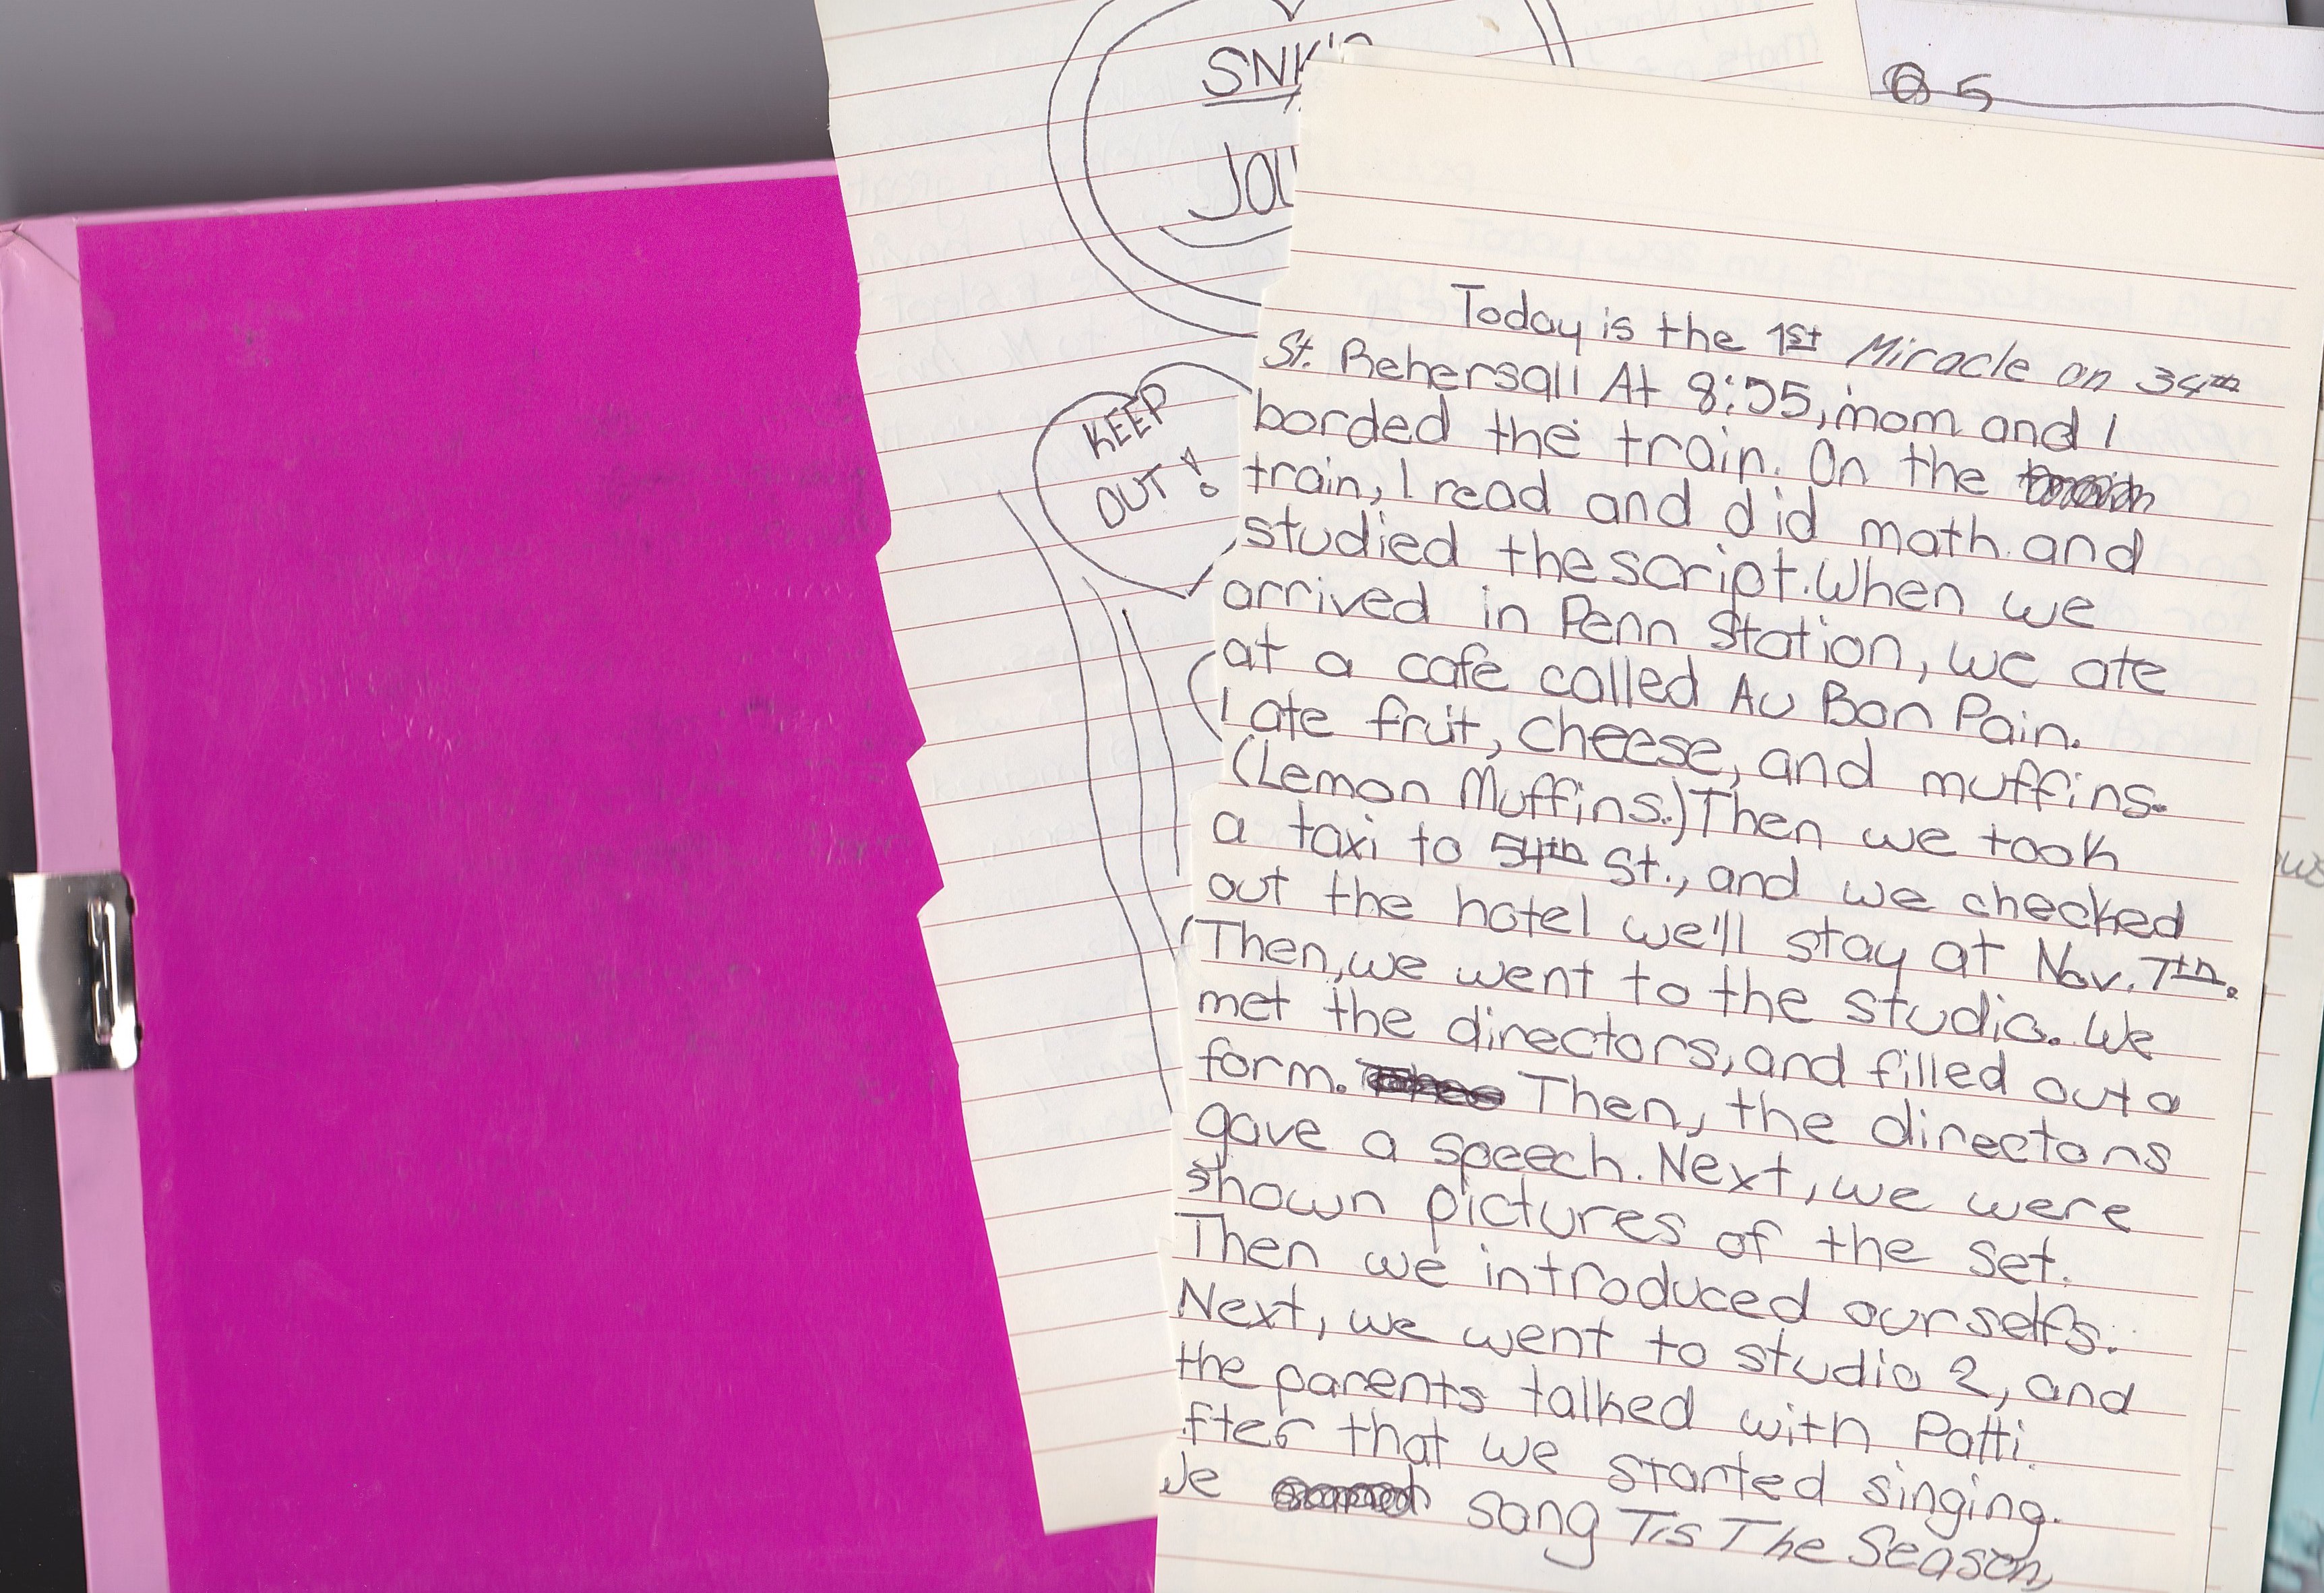 SNK's
JOU
KEEP
OUT!
5
Today is the 1st Miracle on 34th
St. Rehersal! At 8:05, mom and I
borded the train. On the
train, I read and did math and
studied the script. When we
arrived in Penn Station, we ate
at a cafe called Au Bon Pain.
I ate fruit, cheese, and muffins.
(Lemon Muffins.) Then we took
a taxi to 54th St., and we checked
out the hotel we'll stay at Nov. 7th.
Then, we went to the studio. We
met the directors, and filled out a
form. Then, the directors
gave a speech. Next, we were
shown pictures of the set.
Then we introduced ourselfs.
Next, we went to studio 2, and
the parents talked with Patti.
fter that we started singing.
We sang Tis The Season,